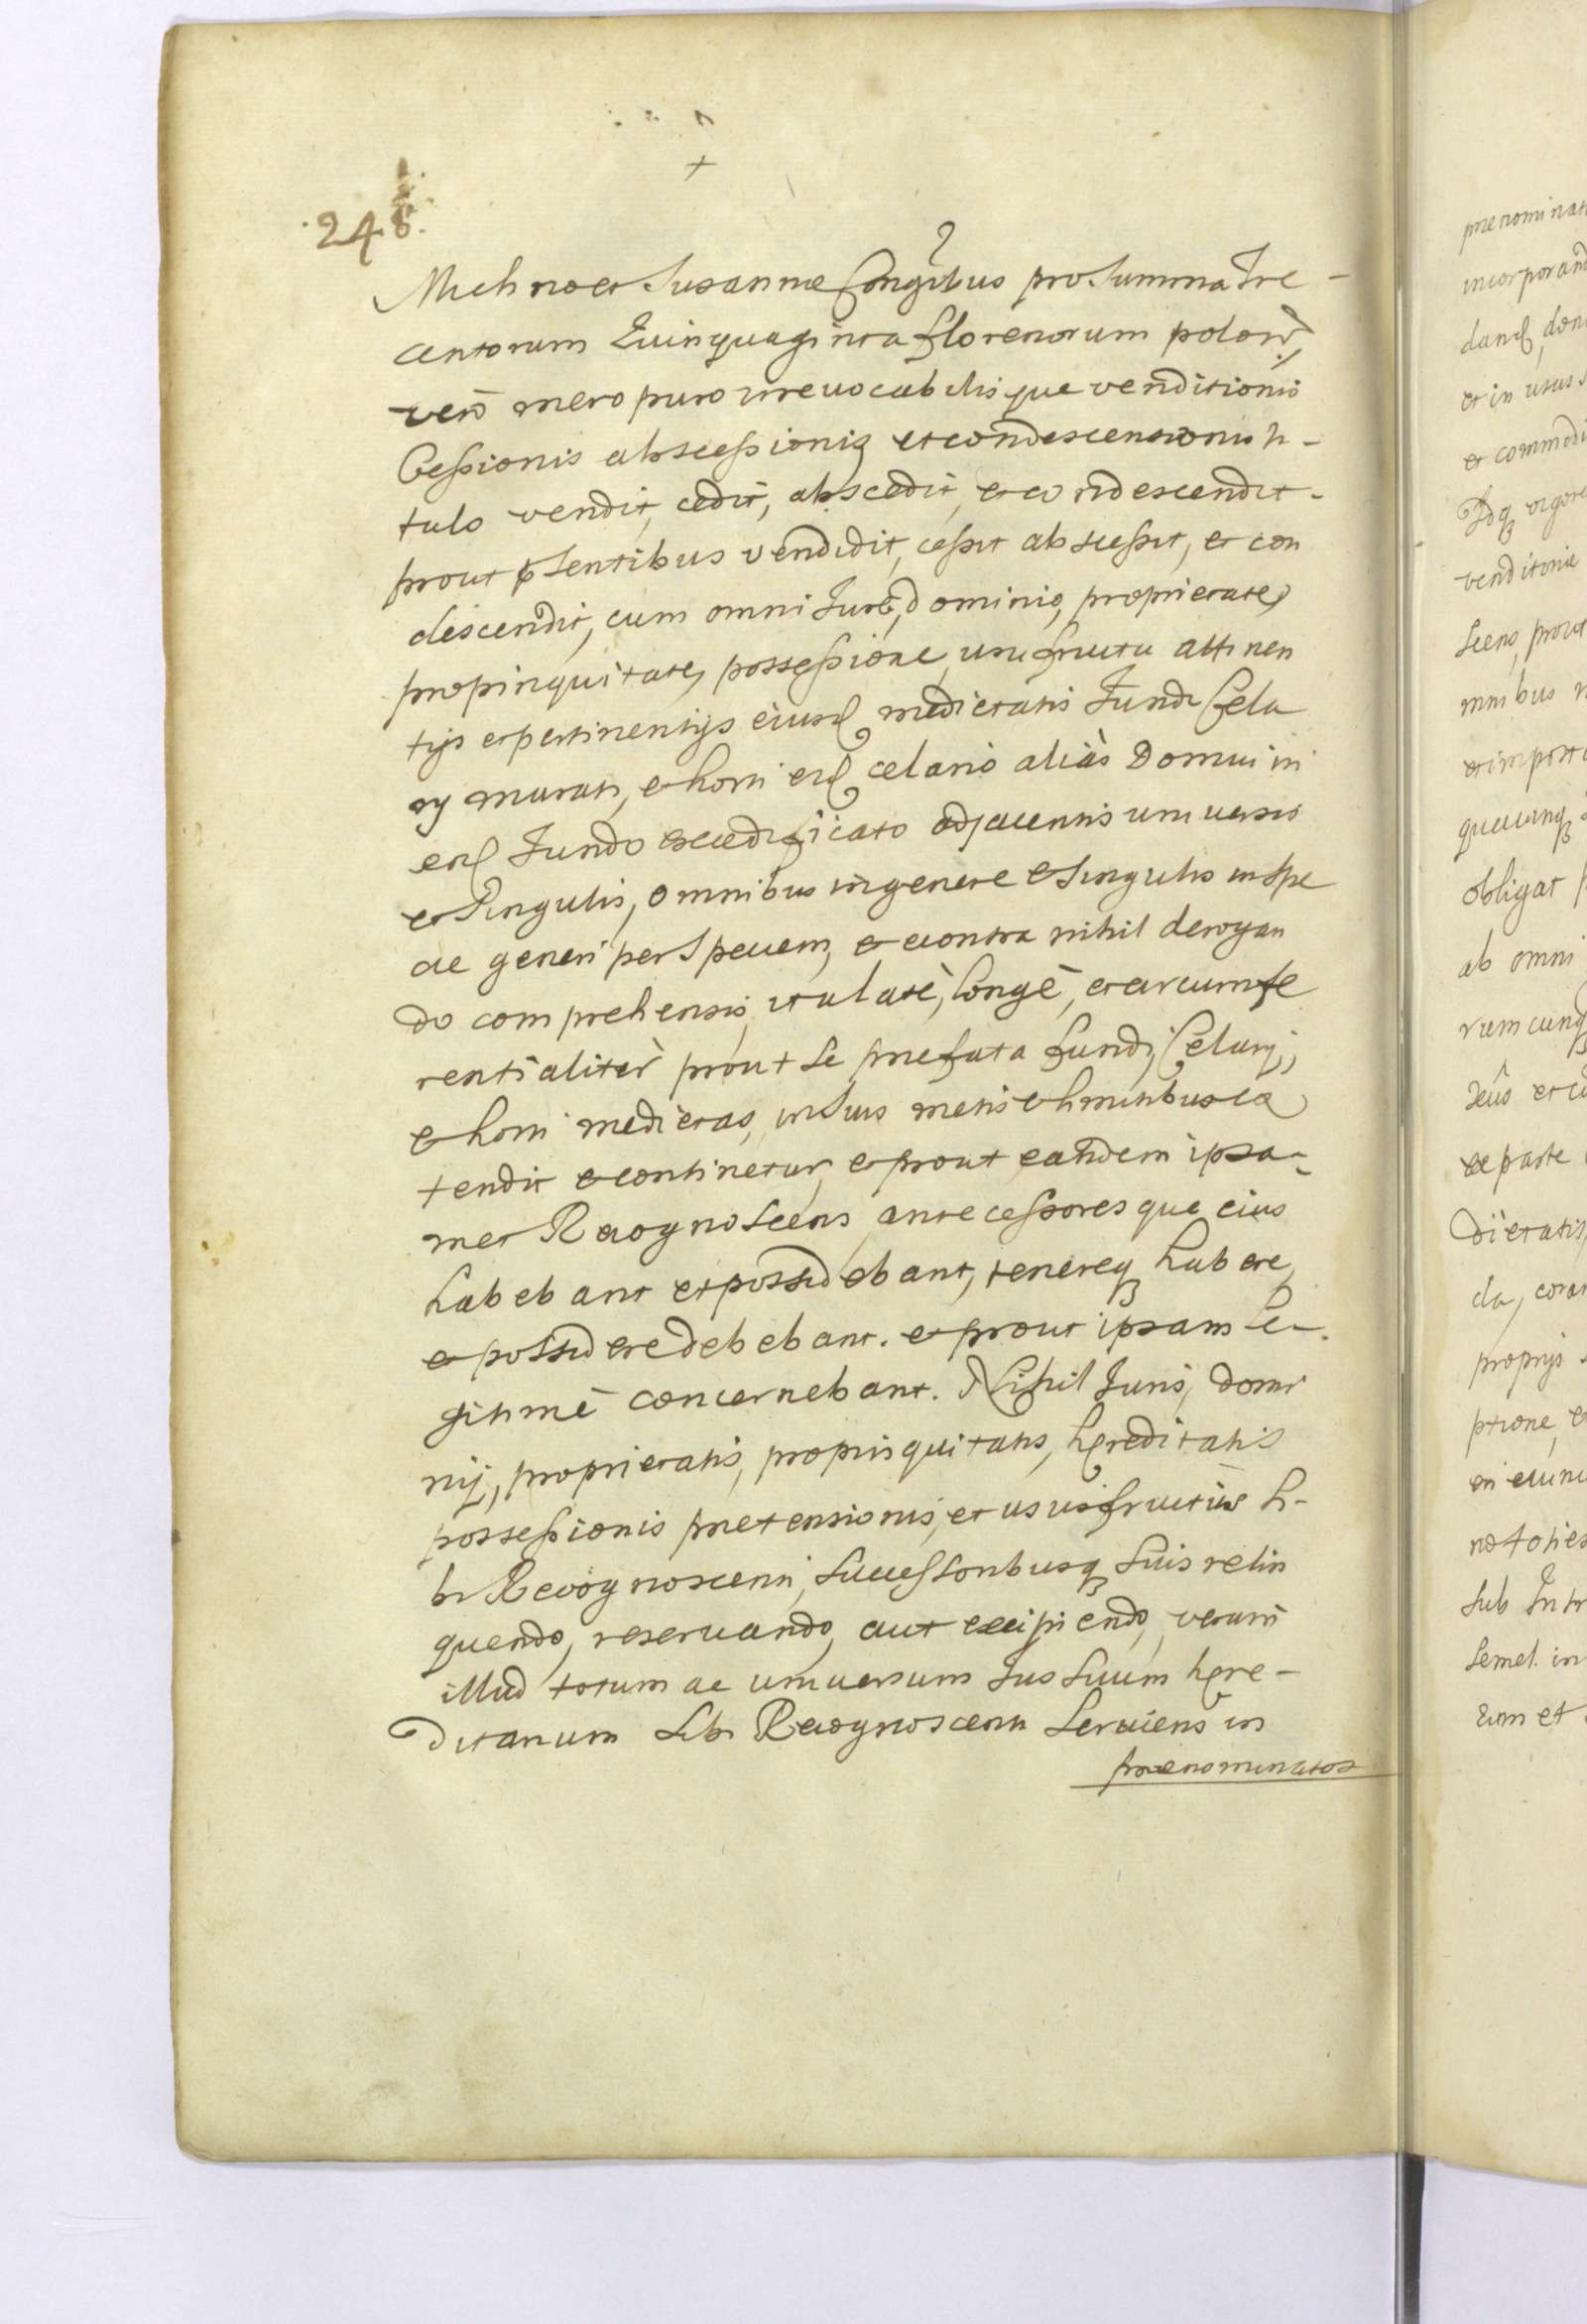 248.
Michno et Susannæ Congibus pro Summa Tre-
centorum Quinquaginta florenorum polon̄,
verō mero puro irreuocabilisque venditionis
Cessionis abscessionis et condescensionis ti-
tulo vendit, cedit, abscedit, et condescendit
prout pñsentibus vendidit, cessit abscessit, et con
descendit, cum omni Jure, dominio, proprietate,
propinquitate, possessione usufructu attinen
tijs et pertinentijs eiusd medietatis Fundi Cela
rij murati, et horti eid celario aliàs Domui in
eod Fundo exaedificato adjacentis universis
et Singulis, omnibus in genere et Singulis in Spe
cie generi per Speciem, et econtra nihil derogan
do comprehensis, ita late, longè, et circumfe
rentialiter prout se præfata fundi, Celarij,
et horti medietas, in suis metis et limitibus ex
tendit et continetur, et prout eandem ipsa-
met Recognoscens, antecessoresque eius
habebant et possidebant, tenereq habere,
et possidere debebant. et prout ipsam le-
gitimè concernebant. Nihil Juris, domi
nij, proprietatis, propinquitatis, hæreditatis
possessionis prætensionis, et ususfructûs si-
bi Recognoscenti, successoribusq suis relin
quendo, reseruando, aut excipiendo, verum
illud totum ac universum Jus suum hære-
ditarium sibi Recognoscenti seruiens in
prænominatos
prænominat
incorporand
dand, don
et in usus s
et commodi
Idq vigore
venditoriæ
scens, prout
mnibus
et imposit
quacunq
obligat
ab omni
rumcunq
ex parte
dietatis,
da, coram
proprijs
ptione, et
nototies
sub Intr
semel. in
rum et